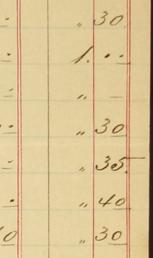 „ 30
1. ..
„ –
„ 30
„ 35
„ 40
„ 30